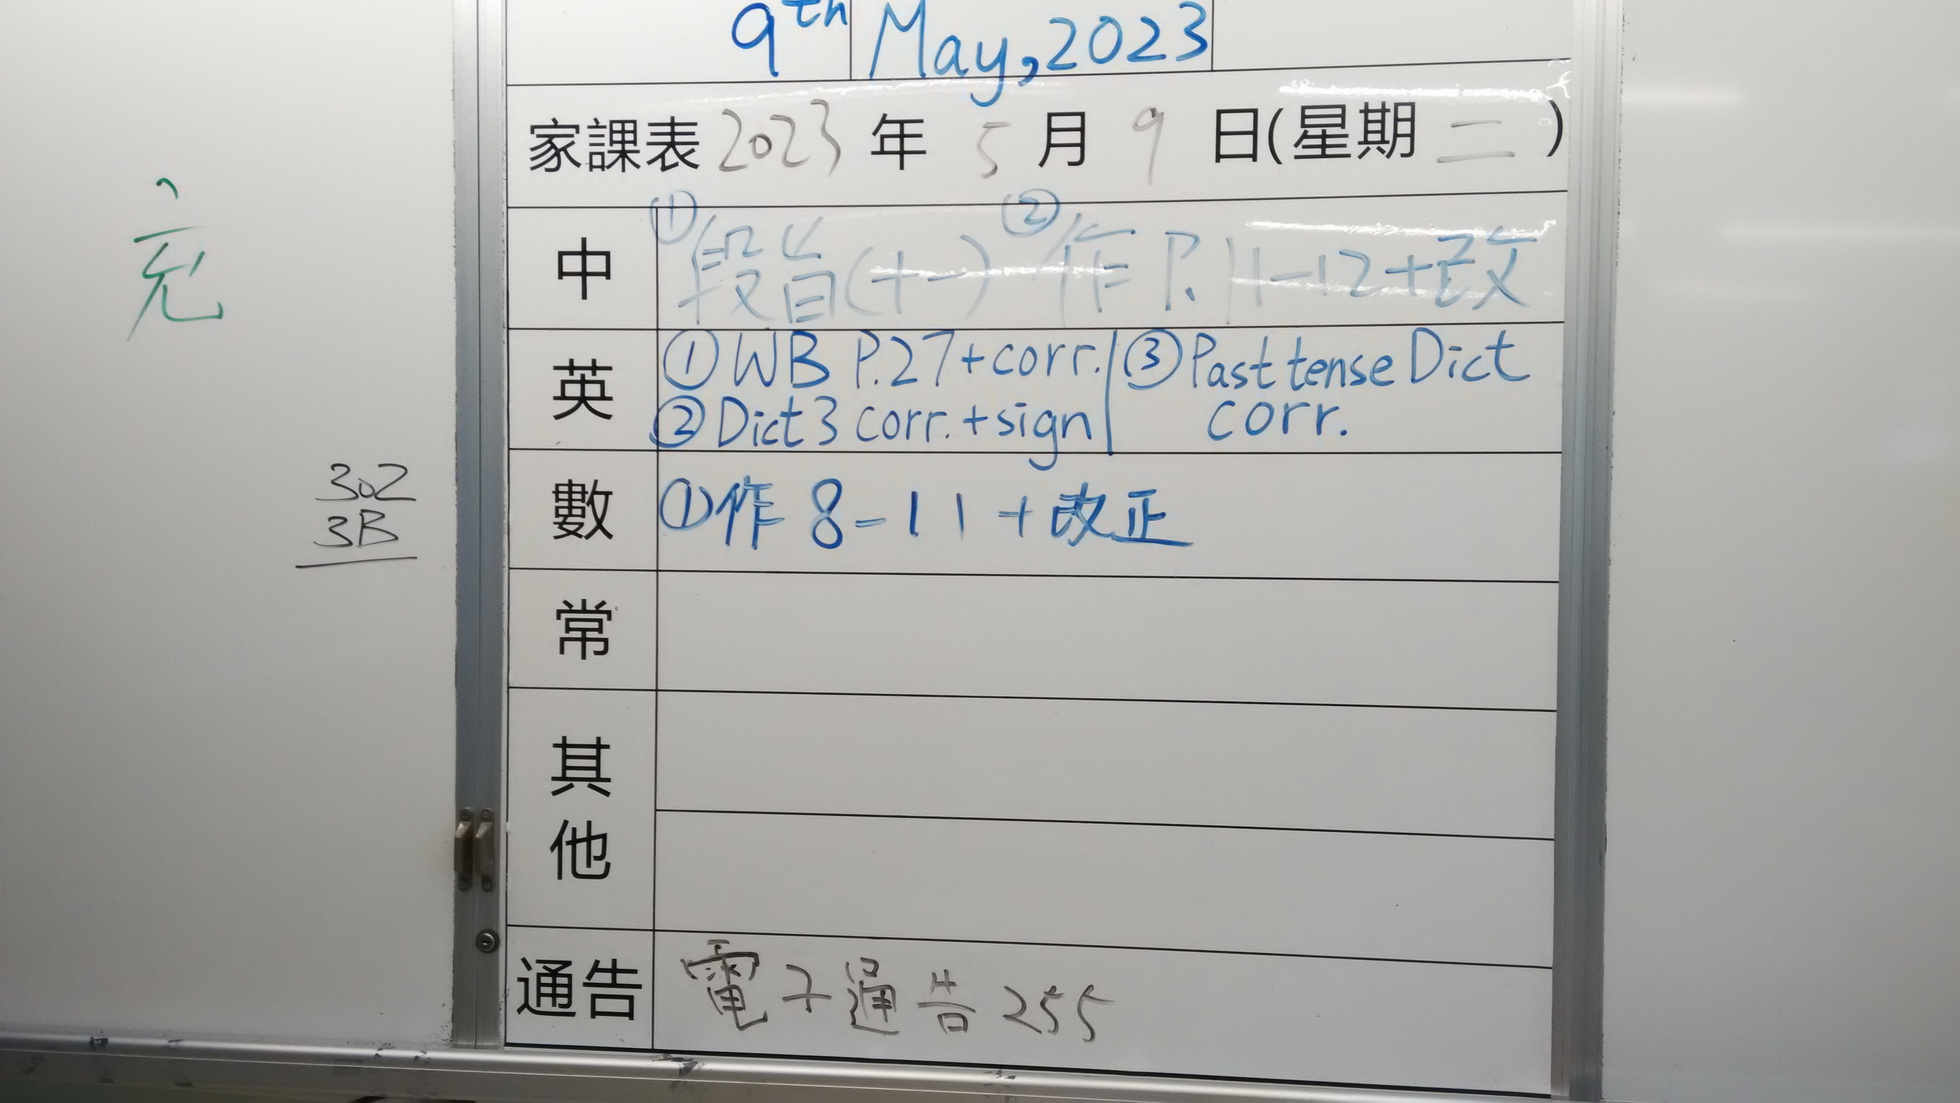 9th May, 2023
家課表 2023 年 5 月 9 日(星期 二 )
中 ①段旨(十一) ②作 P.11-12+改
英 ①WB P.27+corr. ③Past tense Dict
②Dict 3 corr.+sign corr.
數 ①作 8-11+改正
常
其
他
通告 電子通告 255
充
302
3B